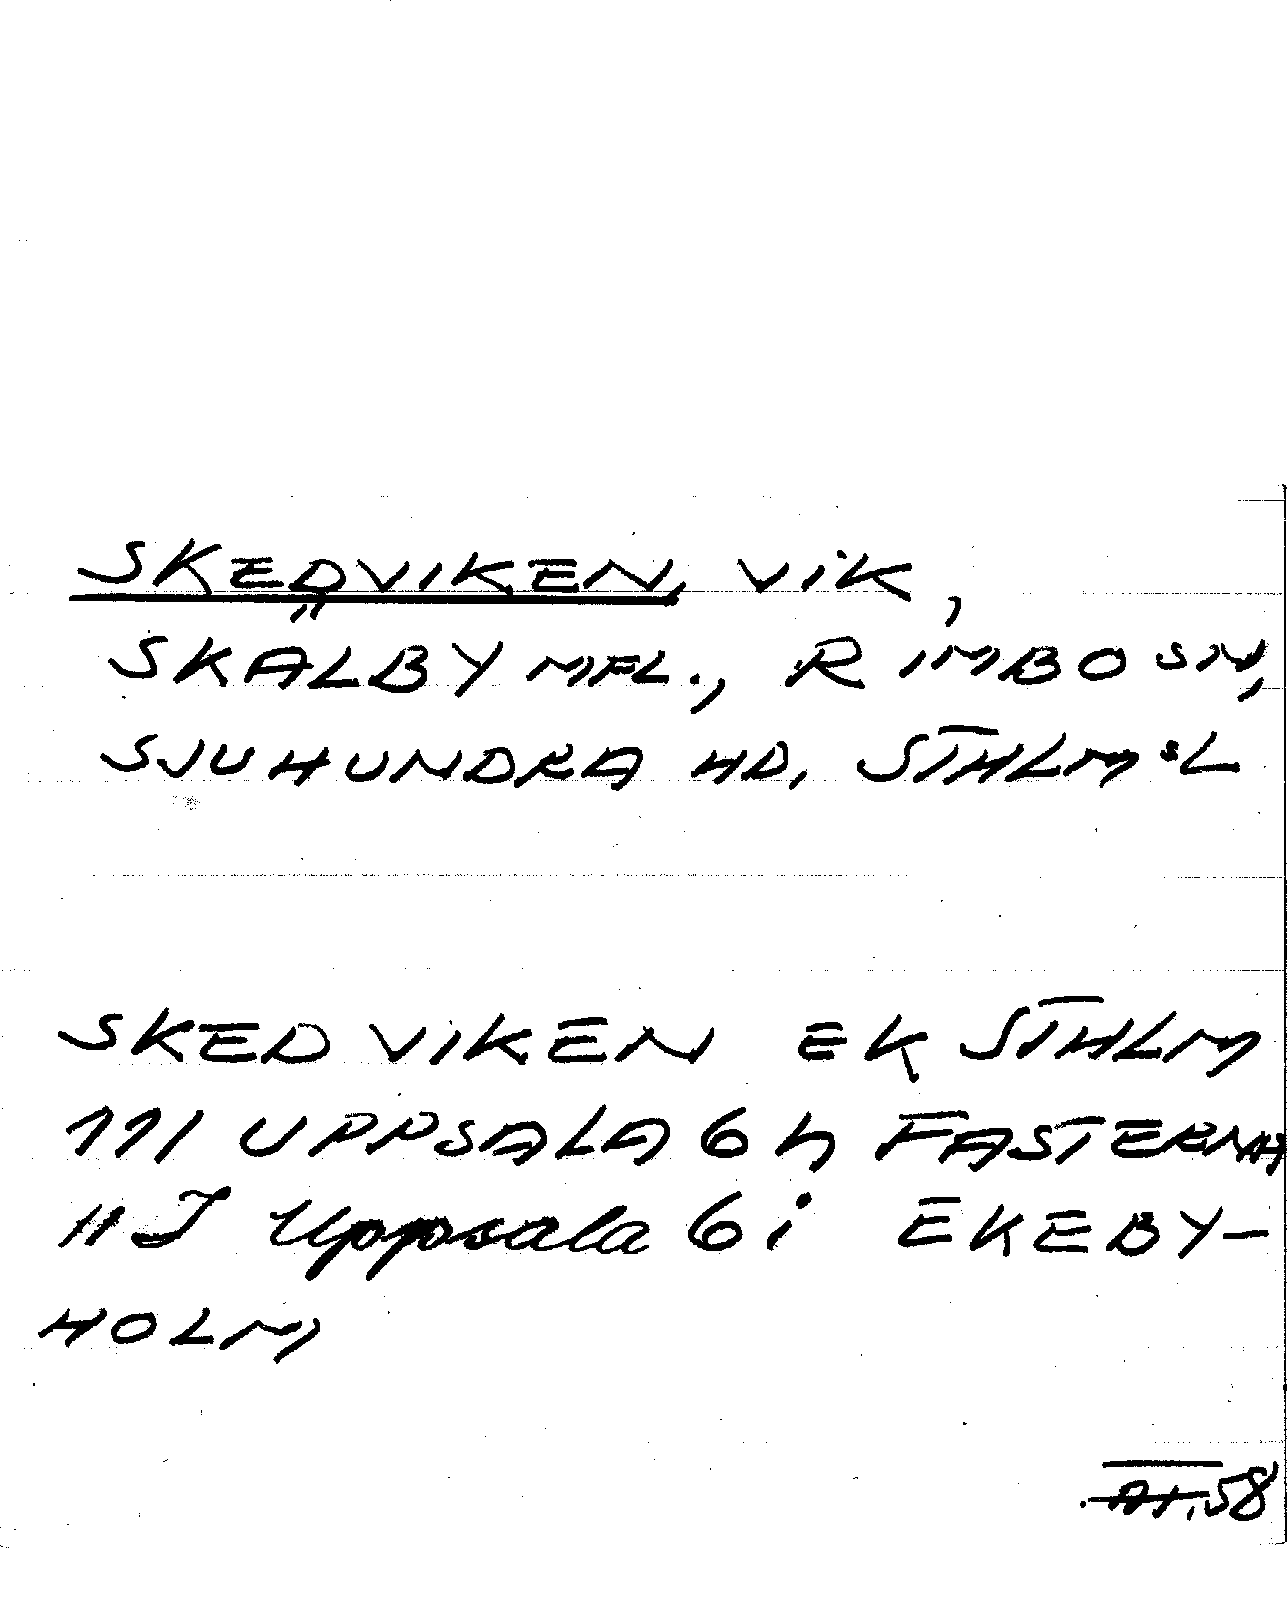 SKEDVIKEN, VIK,
SKÄLBY MFL., RIMBO SN,
SJUHUNDRA HD, STHLMSL
SKEDVIKEN EK STHLM
111 UPPSALA 6 h FASTERNA
11 J Uppsala 6 i EKEBY-
HOLM
58